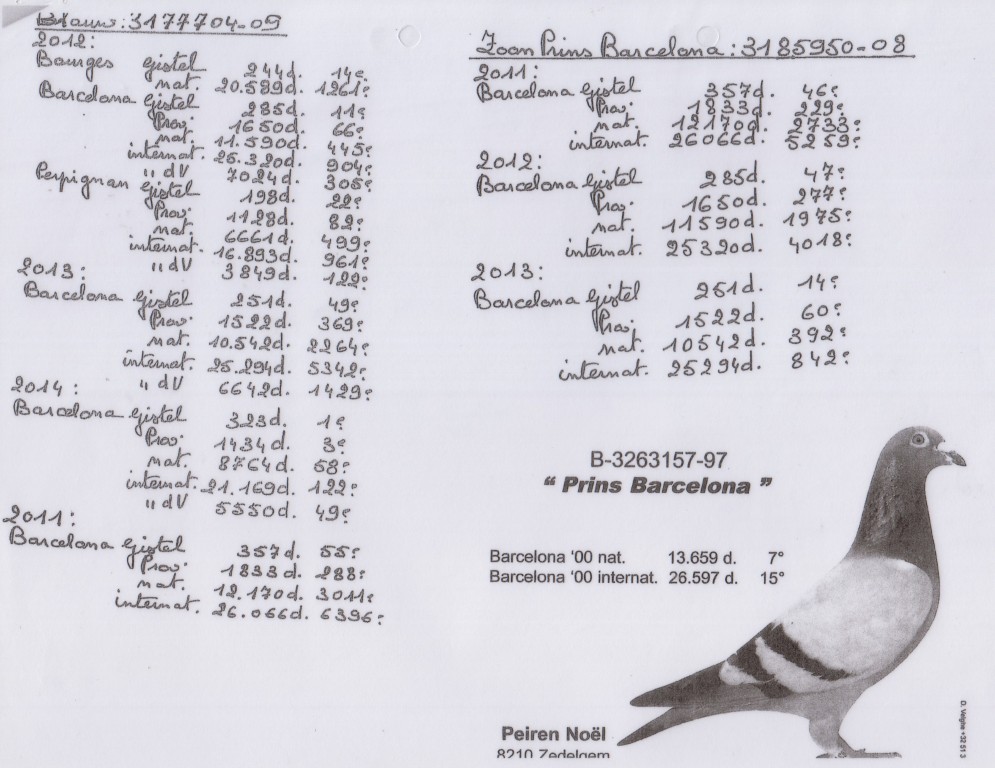 Blauw: 3177704-09
2012:
Bourges Gistel 244d. 14e
nat. 20.599d. 1261e
Barcelona Gistel 285d. 11e
Prov. 1650d. 66e
nat. 11.590d. 445e
internat. 25.320d. 904e
" dV 7024d. 305e
Perpignan Gistel 198d. 22e
Prov. 1128d. 82e
nat. 6661d. 499e
internat. 16.893d. 961e
" dV 3849d. 122e
2013:
Barcelona Gistel 251d. 49e
Prov. 1522d. 369e
nat. 10.542d. 2264e
internat. 25.294d. 5342e
" dV 6642d. 1429e
2014:
Barcelona Gistel 323d. 1e
Prov. 1434d. 3e
nat. 8764d. 58e
internat. 21.169d. 122e
" dV 5550d. 49e
2011:
Barcelona Gistel 357d. 55e
Prov. 1833d. 288e
nat. 12.170d. 3011e
internat. 26.066d. 6396e
Zoon Prins Barcelona: 3185950-08
2011:
Barcelona Gistel 357d. 46e
Prov. 1833d. 229e
nat. 12170d. 2733e
internat. 26066d. 5259e
2012:
Barcelona Gistel 285d. 47e
Prov. 1650d. 277e
nat. 11590d. 1975e
internat. 25320d. 4018e
2013:
Barcelona Gistel 251d. 14e
Prov. 1522d. 60e
nat. 10542d. 392e
internat. 25294d. 842e
B-3263157-97
“ Prins Barcelona ”
Barcelona '00 nat. 13.659 d. 7°
Barcelona '00 internat. 26.597 d. 15°
Peiren Noël
8210 Zedelgem
D. Velghe +32 51 3